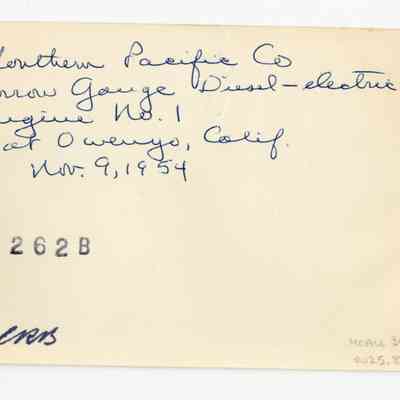 Southern Pacific Co
Narrow Gauge Diesel-electric
Engine No. 1
at Owenyo, Calif.
Nov. 9, 1954
262B
CRB